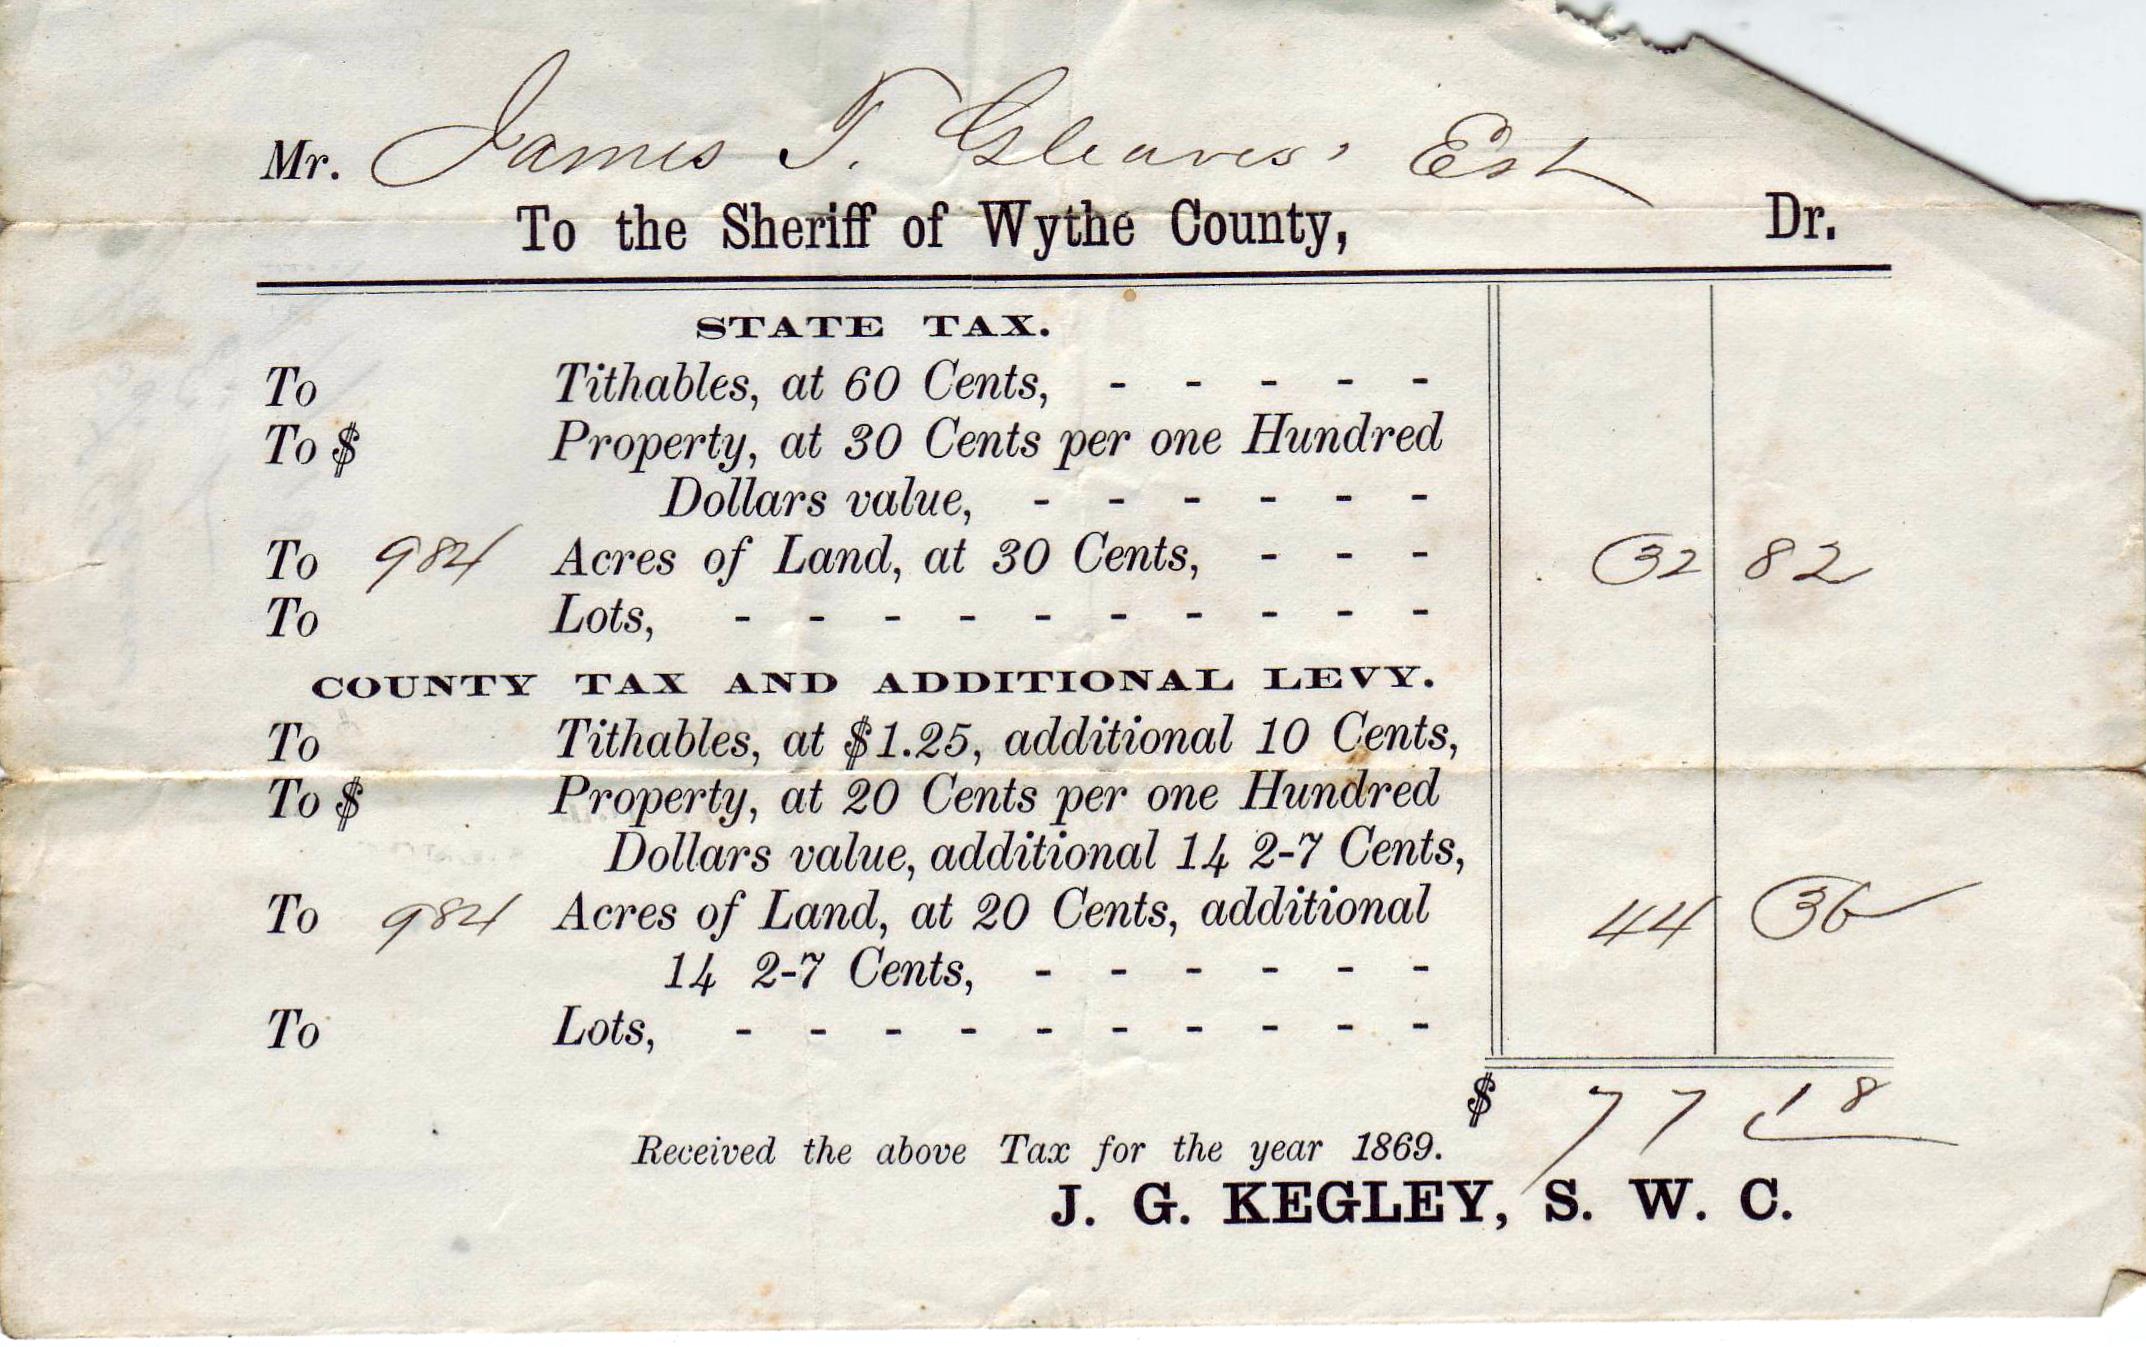 Mr. James T. Gleaves' Est
To the Sheriff of Wythe County, Dr.
STATE TAX.
To Tithables, at 60 Cents, - - - - -
To $ Property, at 30 Cents per one Hundred
Dollars value, - - - - - -
To 984 Acres of Land, at 30 Cents, - - - 32 82
To Lots, - - - - - - - - - -
COUNTY TAX AND ADDITIONAL LEVY.
To Tithables, at $1.25, additional 10 Cents,
To $ Property, at 20 Cents per one Hundred
Dollars value, additional 14 2-7 Cents,
To 984 Acres of Land, at 20 Cents, additional 44 36
14 2-7 Cents, - - - - - -
To Lots, - - - - - - - - - -
$ 77 18
Received the above Tax for the year 1869.
J. G. KEGLEY, S. W. C.